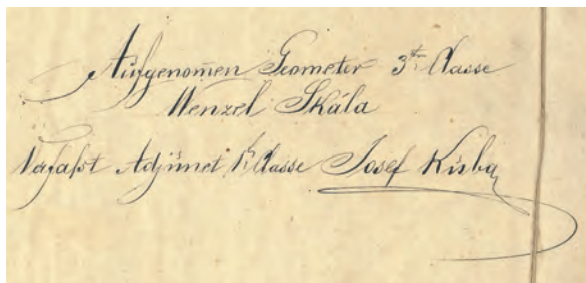 Aufgenom̄en Geometer 3ter Classe
Wenzel Skála
Adjunct 1r Classe Josef